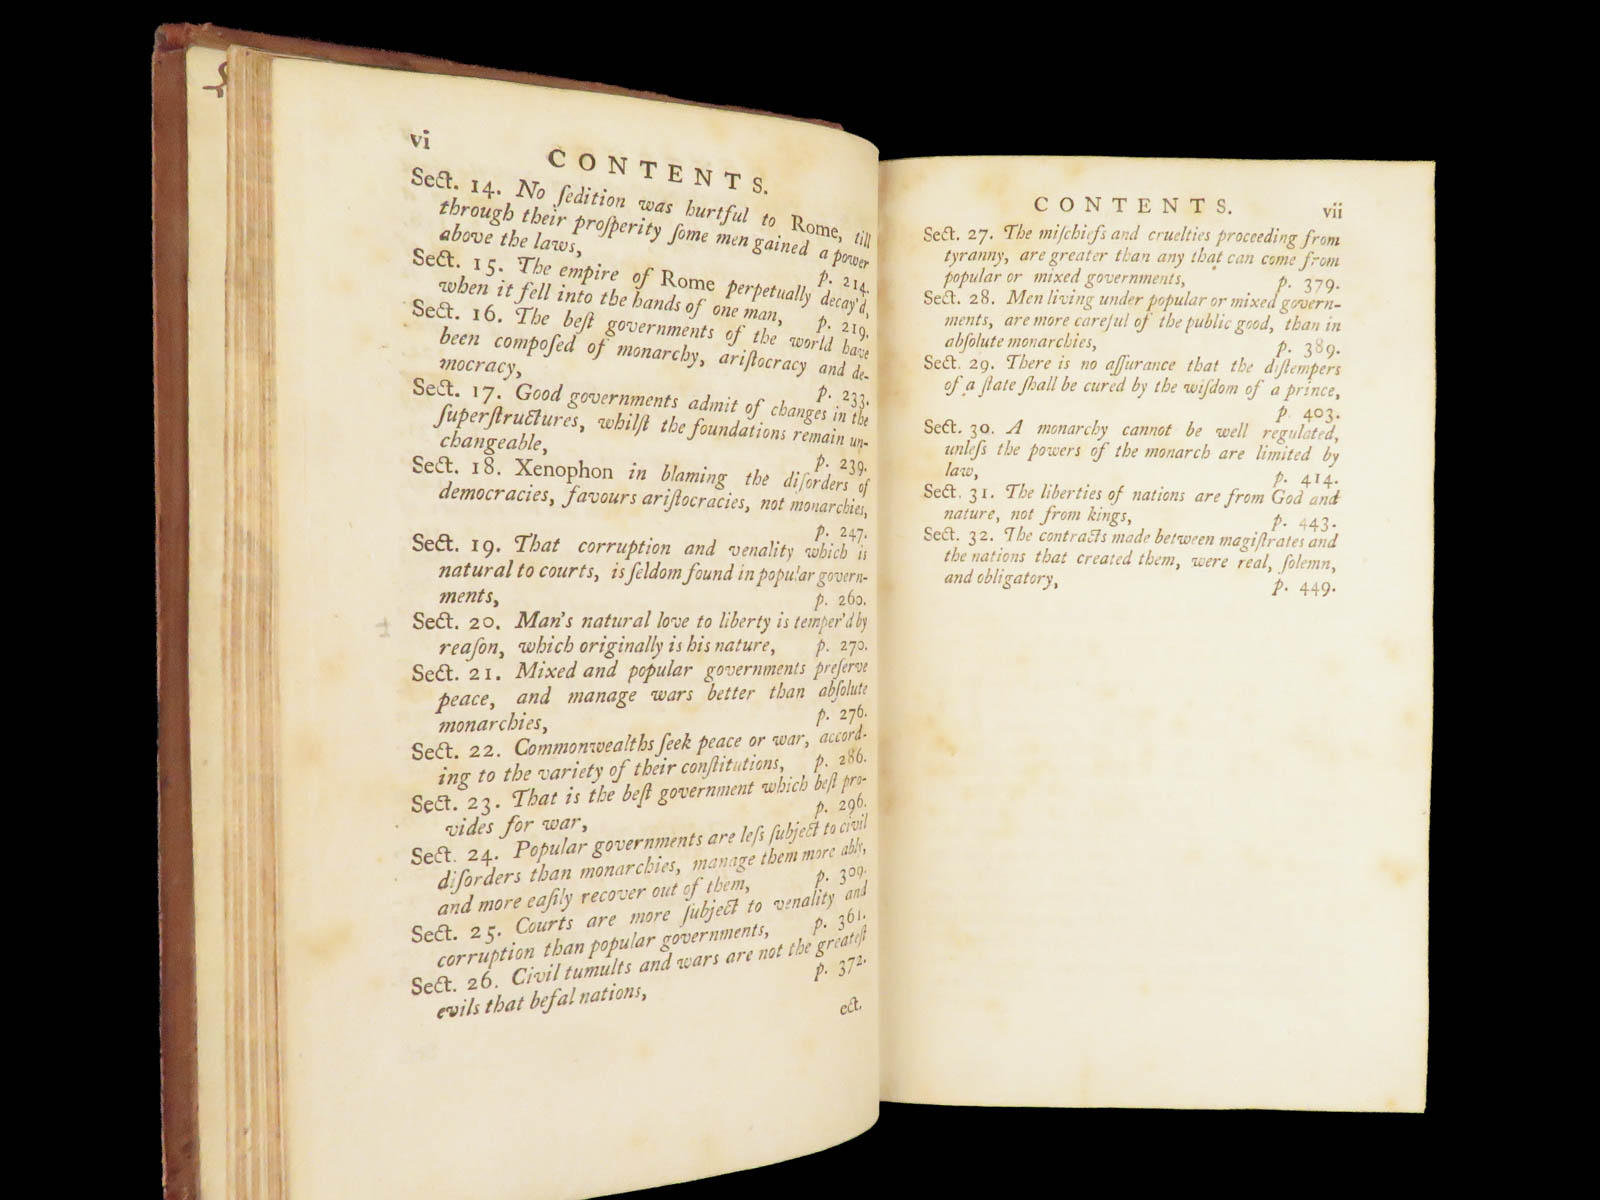 vi
CONTENTS.
Sect. 14. No ſedition was hurtful to Rome, till
through their proſperity ſome men gained a power
above the laws, p. 214.
Sect. 15. The empire of Rome perpetually decay'd,
when it fell into the hands of one man, p. 219.
Sect. 16. The beſt governments of the world have
been compoſed of monarchy, ariſtocracy and de-
mocracy, p. 233.
Sect. 17. Good governments admit of changes in the
ſuperſtructures, whilſt the foundations remain un-
changeable, p. 239.
Sect. 18. Xenophon in blaming the diſorders of
democracies, favours ariſtocracies, not monarchies,
p. 247.
Sect. 19. That corruption and venality which is
natural to courts, is ſeldom found in popular govern-
ments, p. 260.
Sect. 20. Man's natural love to liberty is temper'd by
reaſon, which originally is his nature, p. 270.
Sect. 21. Mixed and popular governments preſerve
peace, and manage wars better than abſolute
monarchies, p. 276.
Sect. 22. Commonwealths ſeek peace or war, accord-
ing to the variety of their conſtitutions, p. 286.
Sect. 23. That is the beſt government which beſt pro-
vides for war, p. 296.
Sect. 24. Popular governments are leſs ſubject to civil
diſorders than monarchies, manage them more ably,
and more eaſily recover out of them, p. 309.
Sect. 25. Courts are more ſubject to venality and
corruption than popular governments, p. 361.
Sect. 26. Civil tumults and wars are not the greateſt
evils that befal nations, p. 372.
ect.
CONTENTS. vii
Sect. 27. The miſchiefs and cruelties proceeding from
tyranny, are greater than any that can come from
popular or mixed governments, p. 379.
Sect. 28. Men living under popular or mixed govern-
ments, are more careful of the public good, than in
abſolute monarchies, p. 389.
Sect. 29. There is no aſſurance that the diſtempers
of a ſtate ſhall be cured by the wiſdom of a prince,
p. 403.
Sect. 30. A monarchy cannot be well regulated,
unleſs the powers of the monarch are limited by
law, p. 414.
Sect. 31. The liberties of nations are from God and
nature, not from kings, p. 443.
Sect. 32. The contracts made between magiſtrates and
the nations that created them, were real, ſolemn,
and obligatory, p. 449.